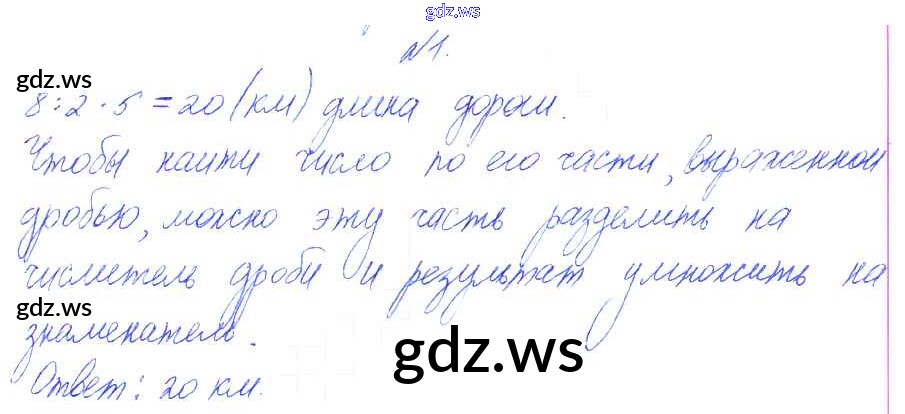 gdz.ws
№1.
gdz.ws
8:2·5=20 (км) длина дороги.
Чтобы найти число по его части, выраженной
дробью, можно эту часть разделить на
числитель дроби и результат умножить на
gdz.ws
знаменатель.
gdz.ws
Ответ: 20 км.